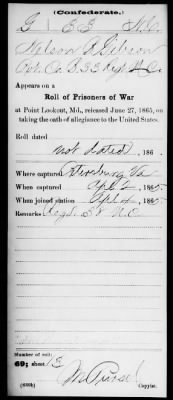 (Confederate.)
G | 33 | N.C.
Nelson A Gibson
Pvt. Co. B 33 Regt N.C.
Appears on a
Roll of Prisoners of War
at Point Lookout, Md., released June 27, 1865, on
taking the oath of allegiance to the United States.
Roll dated
not dated, 186 .
Where captured Petersburg Va
When captured Apl 2, 1865.
When joined station Apl 4, 1865.
Remarks
N.C.
Number of roll:
69; sheet 13
(639b) Copyist.